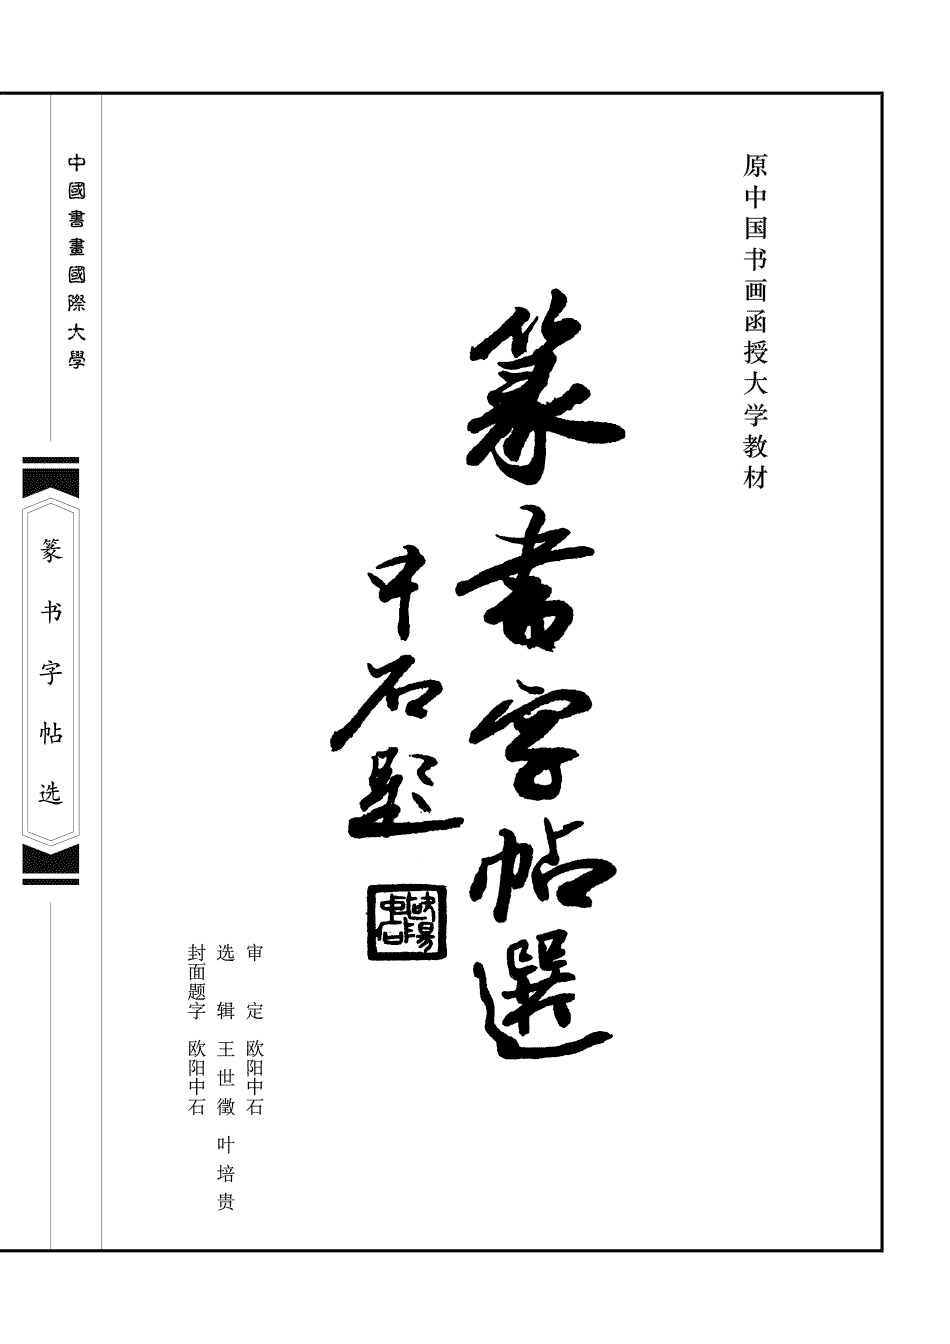 原中国书画函授大学教材
篆書字帖選
中石题
歐陽中石
审定 欧阳中石
选辑 王世徵 叶培贵
封面题字 欧阳中石
中國書畫國際大學
篆书字帖选